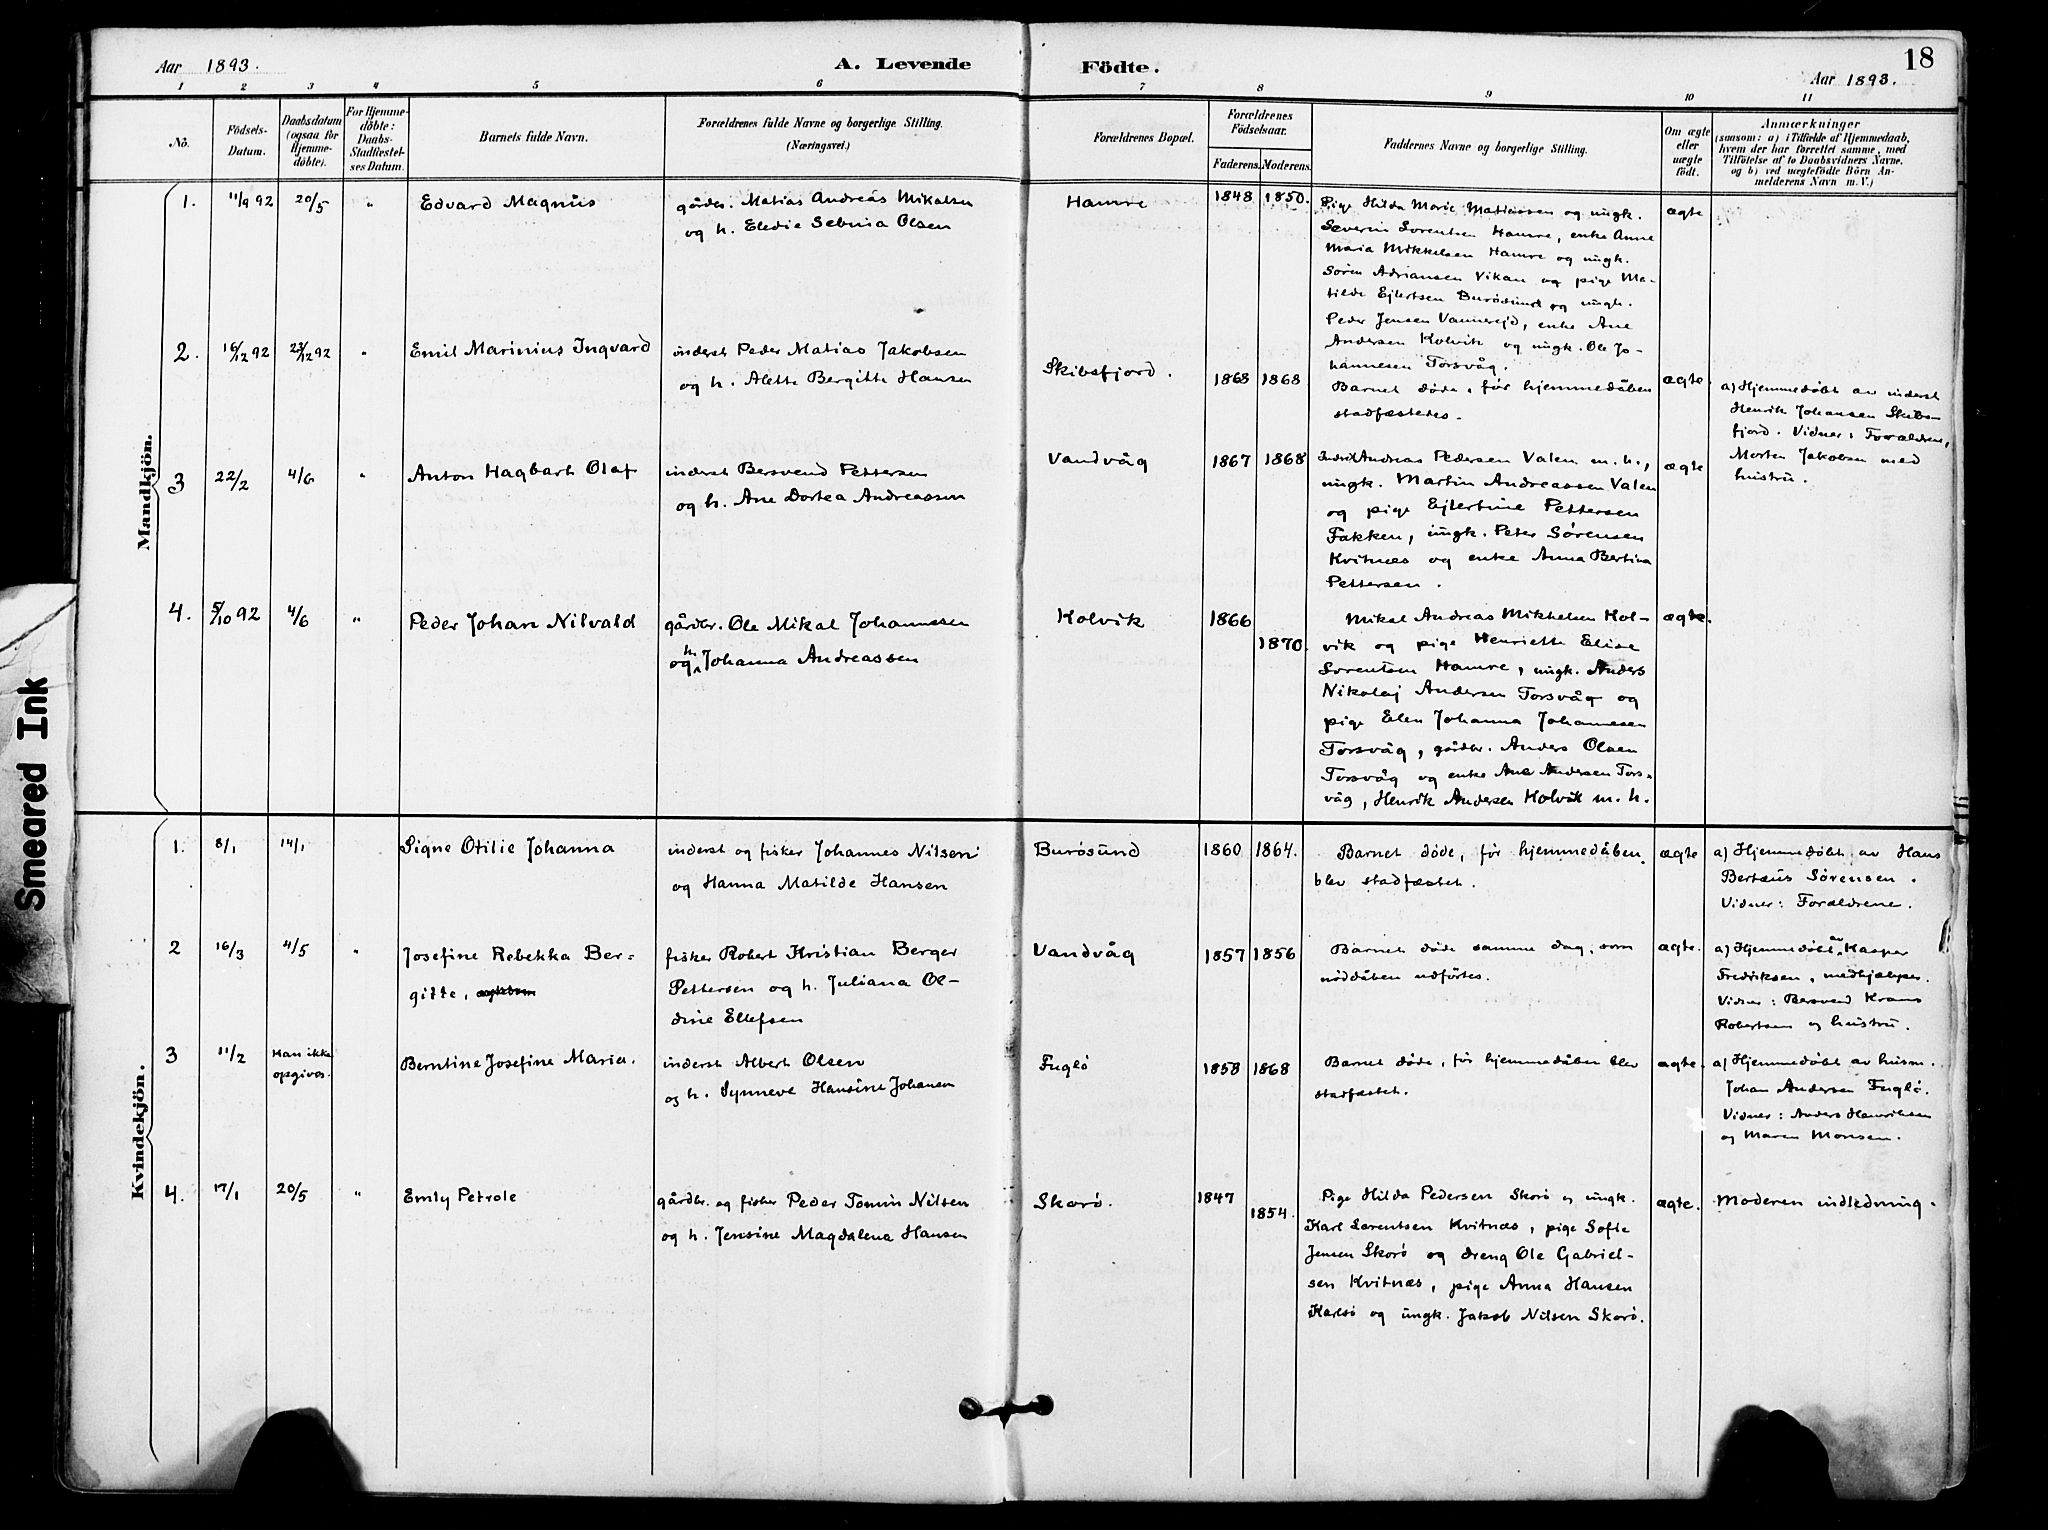 18
Aar 1893.
A. Levende
Födte.
Aar 1893.
1 2 3 4 5 6 7 8 9 10 11
No.
Födsels-
Datum.
Daabsdatum
(ogsaa för
Hjemme-
döbte).
For Hjemme-
döbte:
Daabs-
Stadfæstel-
ses Datum.
Barnets fulde Navn.
Forældrenes fulde Navne og borgerlige Stilling.
(Næringsvei.)
Forældrenes Bopæl.
Forældrenes
Födselsaar.
Faderens. Moderens.
Faddernes Navne og borgerlige Stilling.
Om ægte
eller
uægte
födt.
Anmærkninger
(saasom: a) i Tilfælde af Hjemmedaab,
hvem der har forrettet samme, med
Tilföielse af to Daabsvidners Navne,
og b) ved uægtefödte Börn An-
melderens Navn m. V.)
Mandkjön.
1. 11/9 92 20/5 " Edvard Magnus
gårdbr. Matias Andreas Mikalsen
og h. Eledie Sebina Olsen
Hamre
1848 1850.
Pige Hilda Marie Matiassen og ungk.
Severin Sorentsen Hamre, enke Anne
Maria Mikkelsen Hamre og ungk.
Søren Adriansen Vikan og pige Ma-
tilde Ejlertsen Burøsund og ungk.
Peder Jensen Vannerejd, enke Ane
Andersen Kolvik og ungk. Ole Jo-
hannesen Torsvåg.
ægte
2. 16/12 92 23/12 92 " Emil Marinius Ingvard
inderst Peder Matias Jakobsen
og h. Alette Bergitte Hansen
Skibsfjord.
1868 1868
Barnet døde, før hjemmedåben
stadfæstedes.
ægte.
a) Hjemmedøbt av inderst
Henrik Johansen Skibs-
fjord. Vidner: Forældrene,
Morten Jakobsen med
hustru.
3 22/2 4/6 " Anton Hagbart Olaf
inderst Bersvend Pettersen
og h. Ane Dortea Andreassen
Vandvåg
1867 1868
Andreas Pedersen Valen m. h.,
ungk. Martin Andreassen Valen
og pige Ejlertine Pettersen
Fakken, ungk. Peter Sørensen
Kvitnæs og enke Anna Bertina
Pettersen.
ægte
4. 5/10 92 4/6 " Peder Johan Nilvald
gårdbr. Ole Mikal Johannesen
og h. Johanna Andreassen
Kolvik
1866
1870.
Mikal Andreas Mikkelsen Kol-
vik og pige Henriette Elise
Sorentsen Hamre, ungk. Anders
Nikolaj Andersen Torsvåg og
pige Elen Johanna Johannesen
Torsvåg, gårdbr. Anders Olsen
Torsvåg og enke Ane Andersen Tors-
våg, Henrik Andersen Kolvik m. h.
ægte.
Kvindekjön.
1. 8/1 14/1 Signe Otilie Johanna
inderst og fisker Johannes Nilsen
og Hanna Matilde Hansen
Burösund
1860 1864.
Barnet døde, før hjemmedåben
blev stadfæstet.
ægte
a) Hjemmedøbt av Hans
Bertæus Sørensen.
Vidner: Forældrene.
2 16/3 4/5 " Josefine Rebekka Ber-
gitte,
fisker Robert Kristian Berger
Pettersen og h. Juliana Ol-
dine Ellefsen
Vandvåg
1857 1856
Barnet døde samme dag, som
nöddåben udførtes.
ægte.
a) Hjemmedøbt av Kasper
Fredriksen, medhjælper.
Vidner: Bersvend Krans
Robertsen og hustru.
3 11/2 Kan ikke
opgives. Berntine Josefine Maria.
inderst Albert Olsen
og h. Synneve Hansine Johansen
Fuglø
1858 1868
Barnet døde, før hjemmedåben blev
stadfæstet.
ægte.
a) Hjemmedøbt av husm.
Johan Andersen Fuglø.
Vidner: Anders Henriksen
og Maren Monsen.
4. 17/1 20/5 " Emly Petrole
gårdbr. og fisker Peder Tomin Nilsen
og h. Jensine Magdalena Hansen
Skorø.
1847
1854.
Pige Hilda Pedersen Skorø og ungk.
Karl Lorentsen Kvitnæs, pige Sofie
Jensen Skorø og dreng Ole Gabriel-
sen Kvitnæs, pige Anna Hansen
Karlsø og ungk. Jakob Nilsen Skorø.
ægte.
Moderen indledning.
Smeared Ink